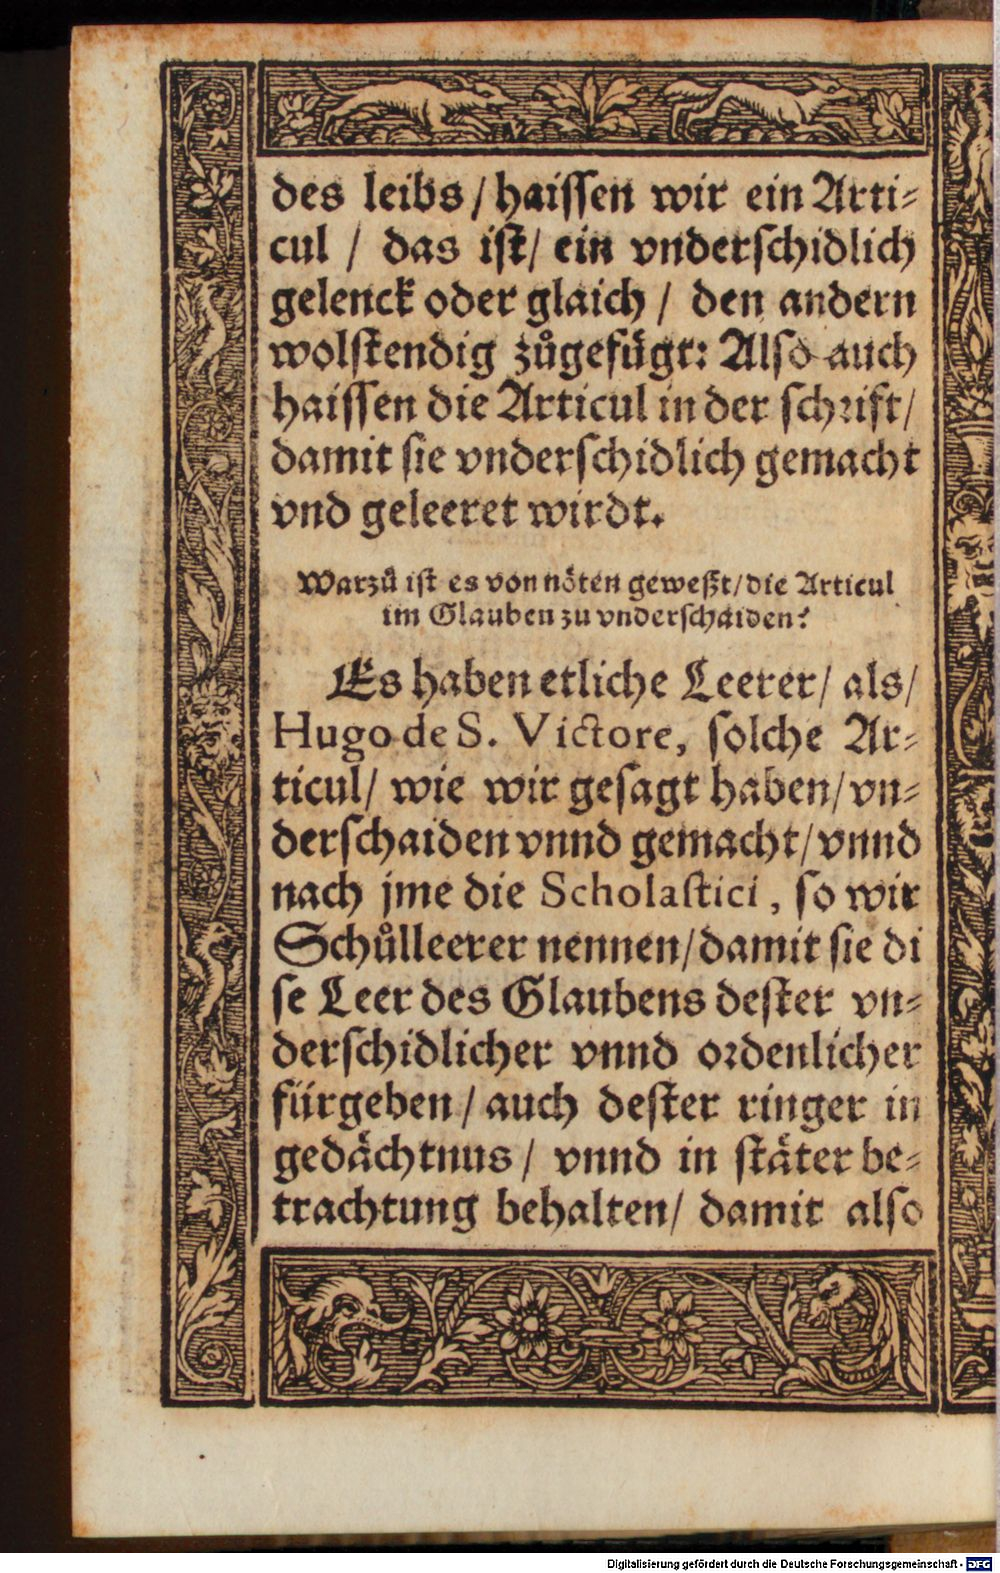 des leibs / haissen wir ein Arti-
cul / das ist / ein vnderschidlich
gelenck oder glaich / den andern
wolstendig zůgefügt: Also auch
haissen die Articul in der schrift /
damit sie vnderschidlich gemacht
vnd geleeret wirdt.
Warzů ist es von nöten geweßt / die Articul
im Glauben zu vnderschaiden?
Es haben etliche Leerer / als /
Hugo de S. Victore, solche Ar-
ticul / wie wir gesagt haben / vn-
derschaiden vnnd gemacht / vnnd
nach jme die Scholastici, so wir
Schůlleerer nennen / damit sie di
se Leer des Glaubens dester vn-
derschidlicher vnnd ordenlicher
fürgeben / auch dester ringer in
gedächtnus / vnnd in stäter be-
trachtung behalten / damit also
Digitalisierung gefördert durch die Deutsche Forschungsgemeinschaft - DFG